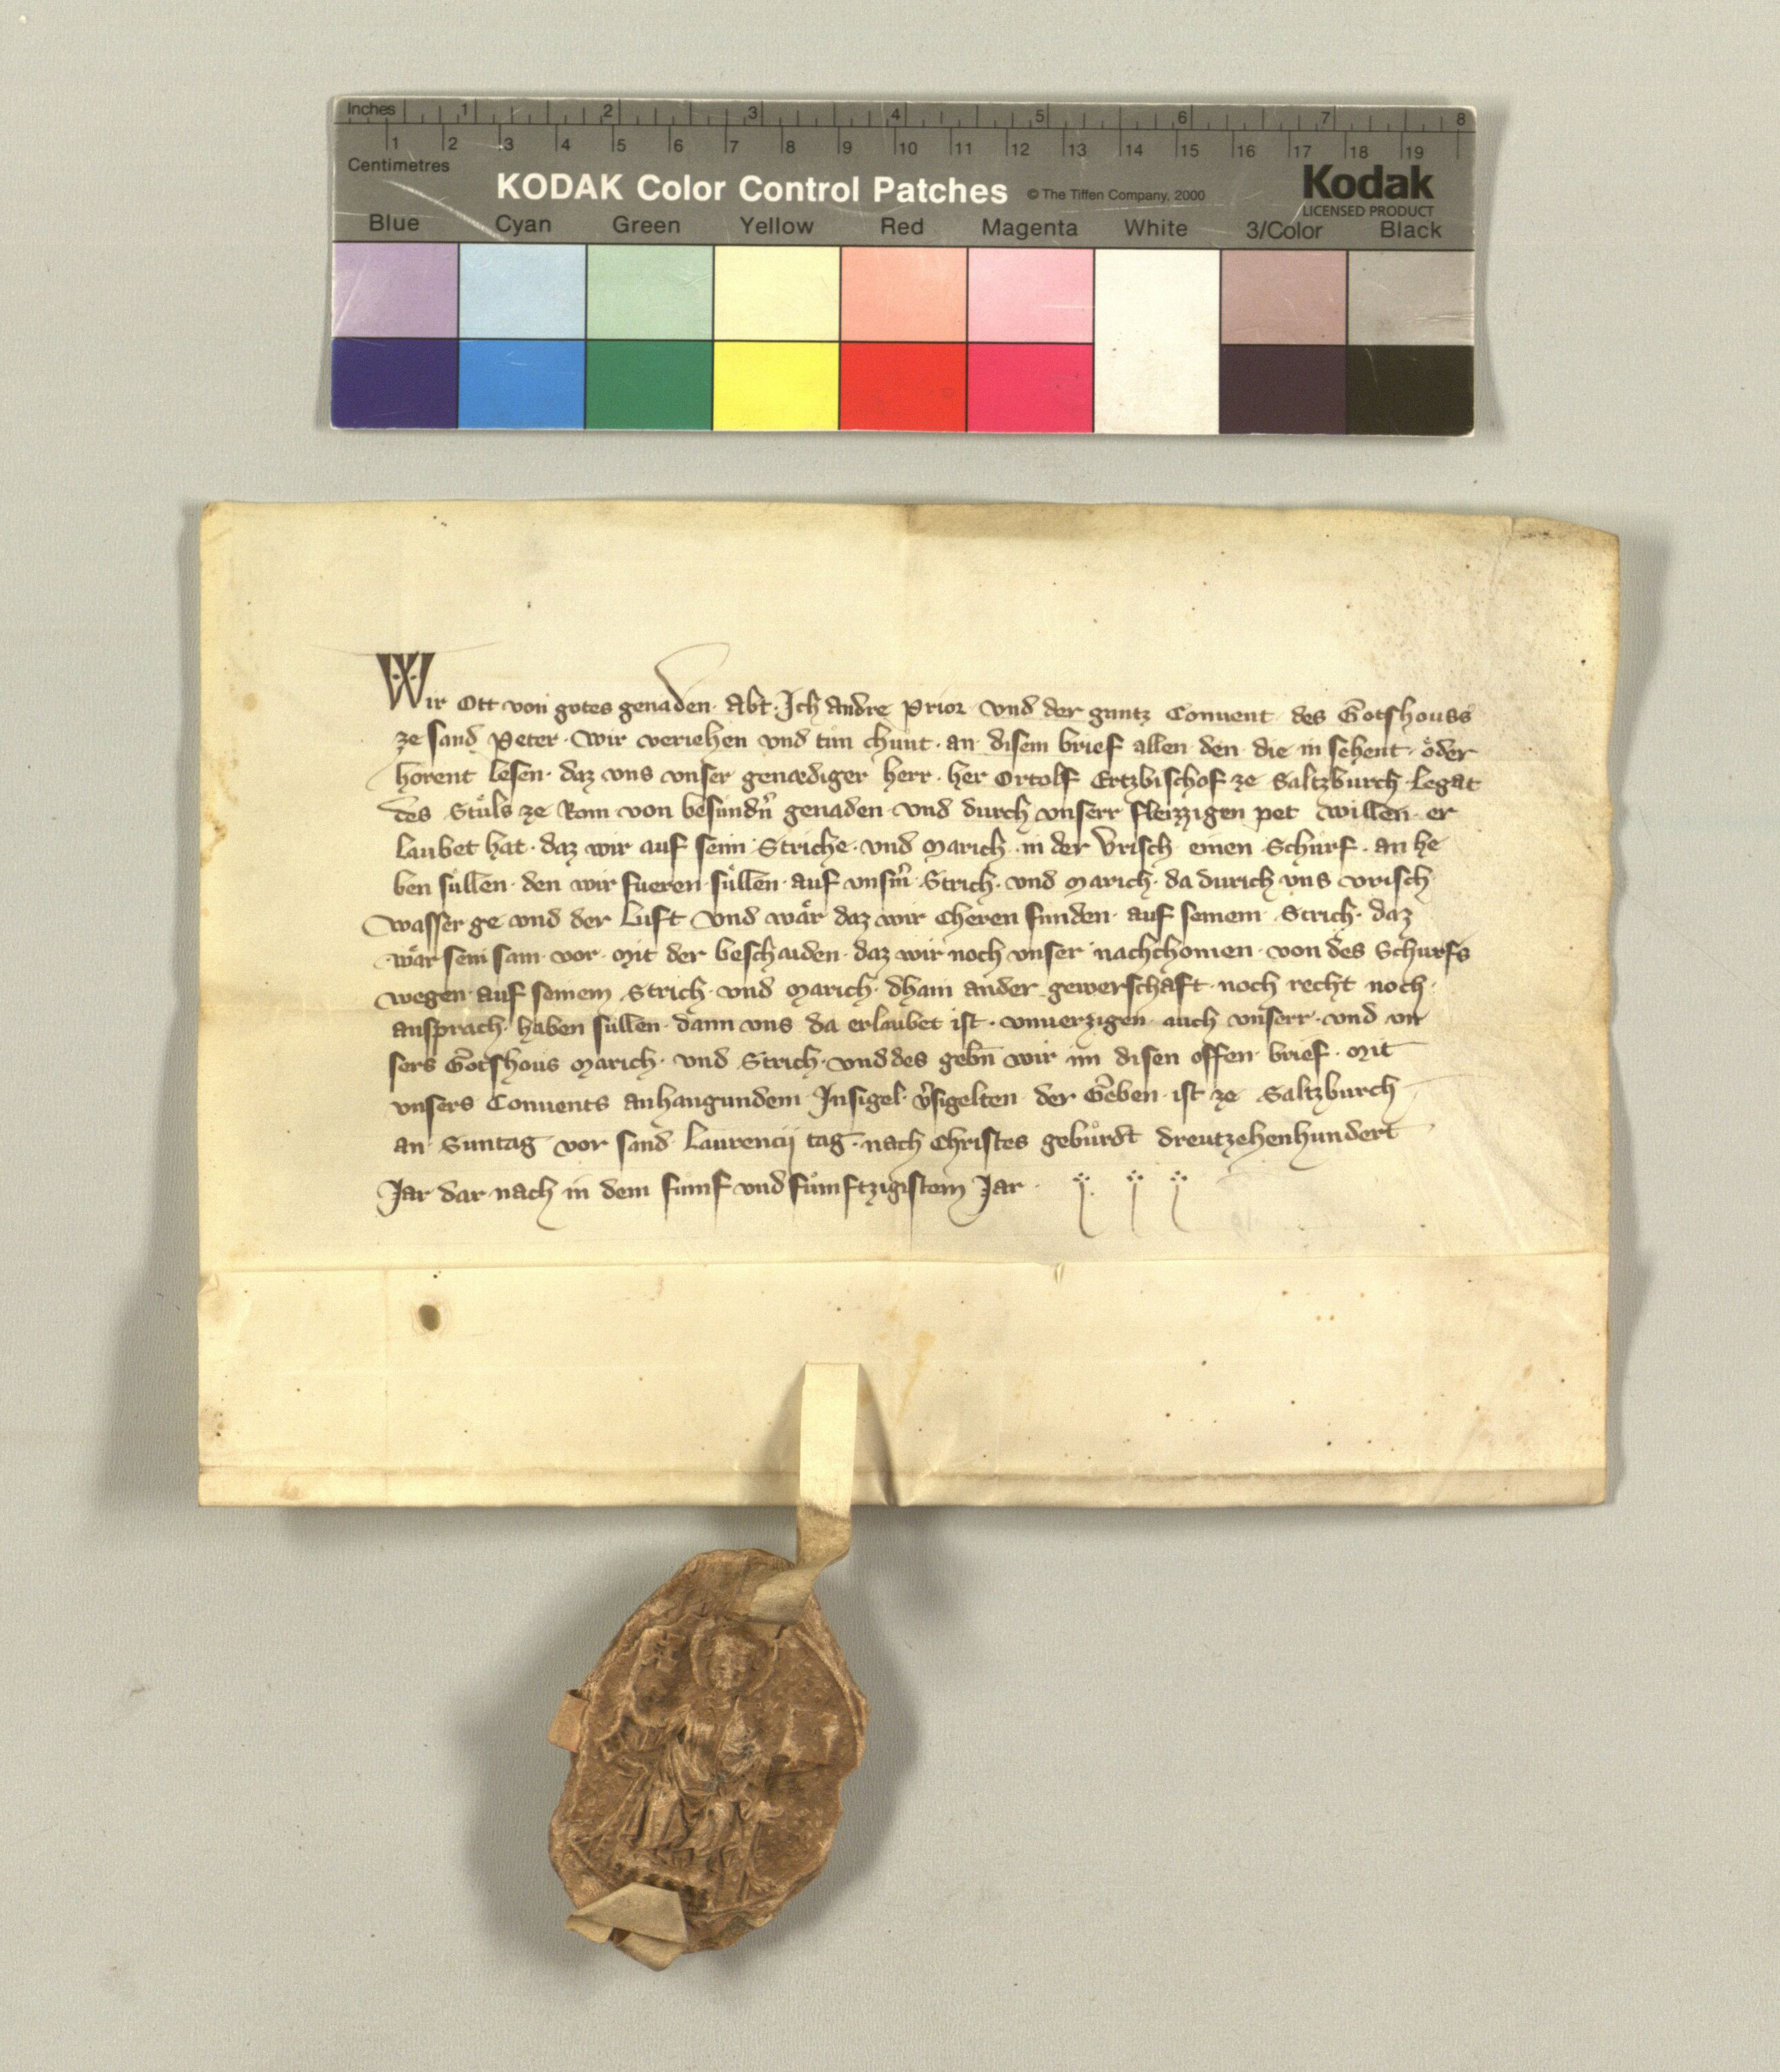 Inches 1 2 3 4 5 6 7 8
1 2 3 4 5 6 7 8 9 10 11 12 13 14 15 16 17 18 19
Centimetres
KODAK Color Control Patches © The Tiffen Company, 2000 Kodak
LICENSED PRODUCT
Blue Cyan Green Yellow Red Magenta White 3/Color Black
Wir Ott von gotes genaden · Abt · Ich Andre Prior vnd der gantz Conuent des Gotshouss
ze sand Peter · Wir veriehen vnd tun chunt · an disem brief allen den die in sehent · oder
horent lesen · daz vns vnser genædiger herr · her Ortolf Ertzbischof ze Saltzburch Legat
des Stůls ze Rom von besundn̄ genaden vnd durch vnserr fleizzigen pet willen er
laubet hat · daz wir auf seim Striche · vnd Marich in der Vrisch einen Schurf · an he
ben sůllen · den wir fueren sůllen · auf vnsm̄ Strich · vnd Marich · da durich vns vrisch
wasser ge vnd der Luft vnd wår daz wir Cheren funden · auf seinem Strich · daz
wår sein sam vor · Mit der beschaiden · daz wir noch vnser nachchomen · von des Schurfs
wegen auf seinem Strich · vnd Marich · dhain ander gewerschaft noch recht noch
ansprach · haben sullen · dann vns da erlaubet ist · vnuerzigen auch vnserr · vnd vn
sers Gotshous Marich · vnd Strich · vnd des gebn̄ wir im disen offen brief · Mit
vnsers Conuents anhangundem Insigel v̄sigelten der Geben ist ze Saltzburch
an Suntag vor sand Laurencij tag · nach Christes gebůrdt dreutzehenhundert
Jar dar nach in dem fumf vnd fůmftzigistem Jar ·